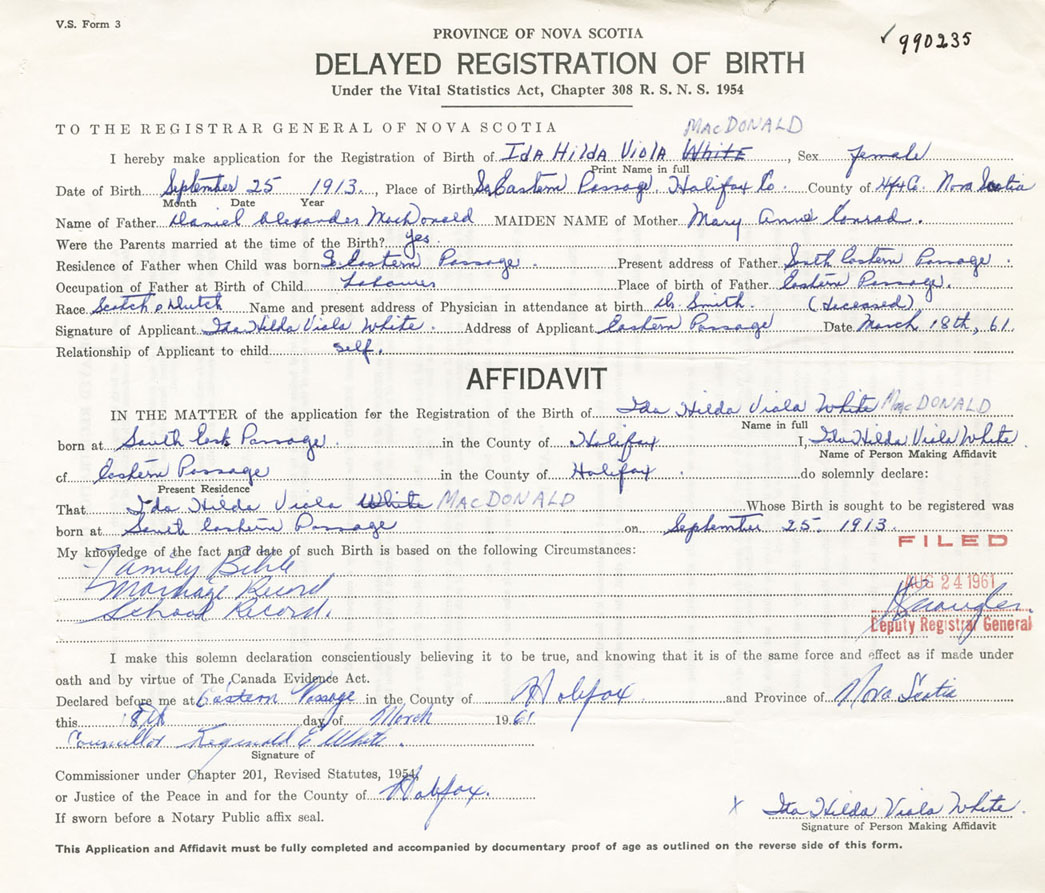 V.S. Form 3
✓ 990235
PROVINCE OF NOVA SCOTIA
DELAYED REGISTRATION OF BIRTH
Under the Vital Statistics Act, Chapter 308 R. S. N. S. 1954
TO THE REGISTRAR GENERAL OF NOVA SCOTIA
MacDONALD
I hereby make application for the Registration of Birth of Ida Hilda Viola White, Sex female
Print Name in full
Date of Birth September 25 1913, Place of Birth So Eastern Passage Halifax Co. County of Nova Scotia
Month Date Year
Name of Father Daniel Alexander MacDonald MAIDEN NAME of Mother Mary Annie Conrad.
Were the Parents married at the time of the Birth? yes.
Residence of Father when Child was born So. Eastern Passage. Present address of Father South Eastern Passage.
Occupation of Father at Birth of Child Labourer Place of birth of Father Eastern Passage.
Race Scotch & Dutch Name and present address of Physician in attendance at birth Dr. Smith. (deceased)
Signature of Applicant Ida Hilda Viola White. Address of Applicant Eastern Passage Date March 18th, 61.
Relationship of Applicant to child self.
AFFIDAVIT
IN THE MATTER of the application for the Registration of the Birth of Ida Hilda Viola White MacDONALD
Name in full
born at South East Passage. in the County of Halifax I, Ida Hilda Viola White.
Name of Person Making Affidavit
of Eastern Passage in the County of Halifax. do solemnly declare:
Present Residence
That Ida Hilda Viola White MacDONALD Whose Birth is sought to be registered was
born at South Eastern Passage on September 25. 1913
My knowledge of the fact and date of such Birth is based on the following Circumstances:
FILED
Family Bible
AUG 24 1961
Marriage Record
School Record.
Deputy Registrar General
I make this solemn declaration conscientiously believing it to be true, and knowing that it is of the same force and effect as if made under
oath and by virtue of The Canada Evidence Act.
Declared before me at Eastern Passage in the County of Halifax and Province of Nova Scotia
this 18th day of March 1961
Councillor Reginald E White.
Signature of
Commissioner under Chapter 201, Revised Statutes, 1954,
or Justice of the Peace in and for the County of Halifax.
If sworn before a Notary Public affix seal.
X Ida Hilda Viola White.
Signature of Person Making Affidavit
This Application and Affidavit must be fully completed and accompanied by documentary proof of age as outlined on the reverse side of this form.